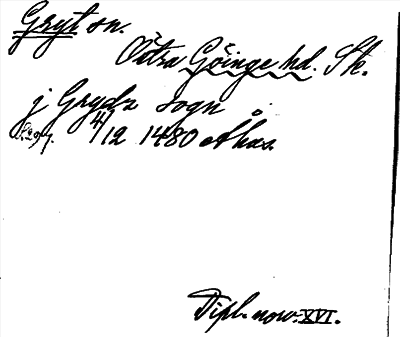 Gryt sn.
Östra Göinge hd. Sk.
j Grydz sogn
4/12 1480 Åhus.
Dipl. norv. XVI.